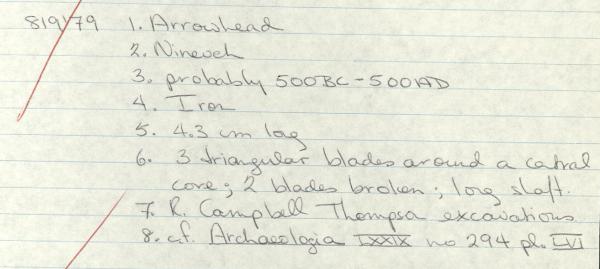 819/79 1. Arrowhead
2. Nineveh
3. probably 500BC - 500AD
4. Iron
5. 4.3 cm long
6. 3 triangular blades around a central
core; 2 blades broken; long shaft.
7. R. Campbell Thompson excavations
8. c.f. Archaeologia LXXIX no 294 pl. LVI